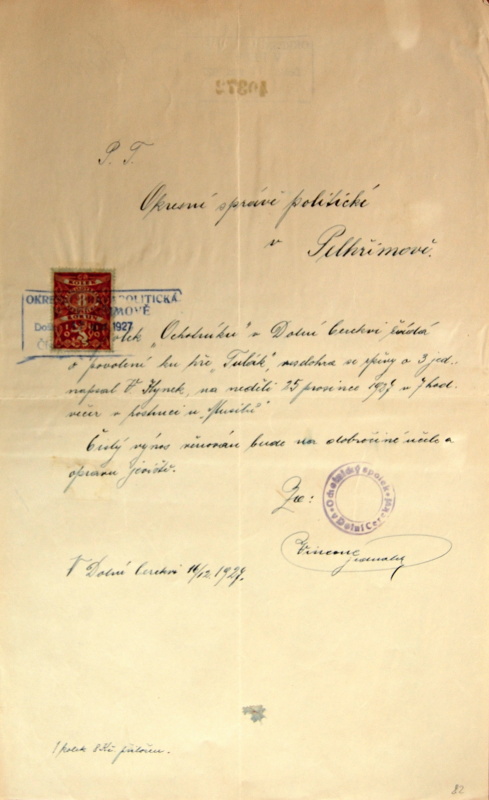 P. T.
Okresní správě politické
v Pelhřimově.
KOLEK
OKRESNÍ SPRÁVA POLITICKÁ
1927
Spolek „Ochotníků" v Dolní Cerekvi žádá
o povolení ku hře „Tulák", veselohra se zpěvy o 3 jed-
napsal V. Hynek, na neděli 25 prosince 1927 v 7 hod-
večer v hostinci u „Musilů"
Čistý výnos věnován bude na dobročiné účele a
opravu jeviště.
Za:
Ochotnický spolek
v Dolní Cerekvi
jednatel
V Dolní Cerekvi 14/12 1927.
1 kolek 8 Kč přiložen.
82